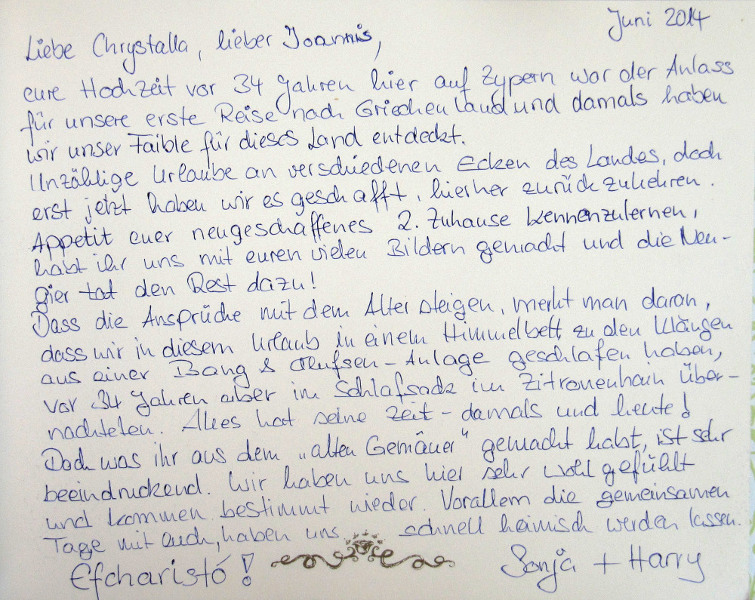 Juni 2014
Liebe Chrystalla, lieber Joannis,
eure Hochzeit vor 34 Jahren hier auf Zypern war der Anlass
für unsere erste Reise nach Griechenland und damals haben
wir unser Faible für dieses Land entdeckt.
Unzählige Urlaube an verschiedenen Ecken des Landes, doch
erst jetzt haben wir es geschafft, hierher zurückzukehren.
Appetit euer neugeschaffenes 2. Zuhause kennenzulernen,
habt ihr uns mit euren vielen Bildern gemacht und die Neu-
gier tat den Rest dazu!
Dass die Ansprüche mit dem Alter steigen, merkt man daran,
dass wir in diesem Urlaub in einem Himmelbett zu den Klängen
aus einer Bang & Olufsen-Anlage geschlafen haben,
vor 34 Jahren aber im Schlafsack im Zitronenhain über-
nachteten. Alles hat seine Zeit - damals und heute!
Doch was ihr aus dem „alten Gemäuer" gemacht habt, ist sehr
beeindruckend. Wir haben uns hier sehr wohl gefühlt
und kommen bestimmt wieder. Vorallem die gemeinsamen
Tage mit euch, haben uns schnell heimisch werden lassen.
Efcharistó! Sonja + Harry